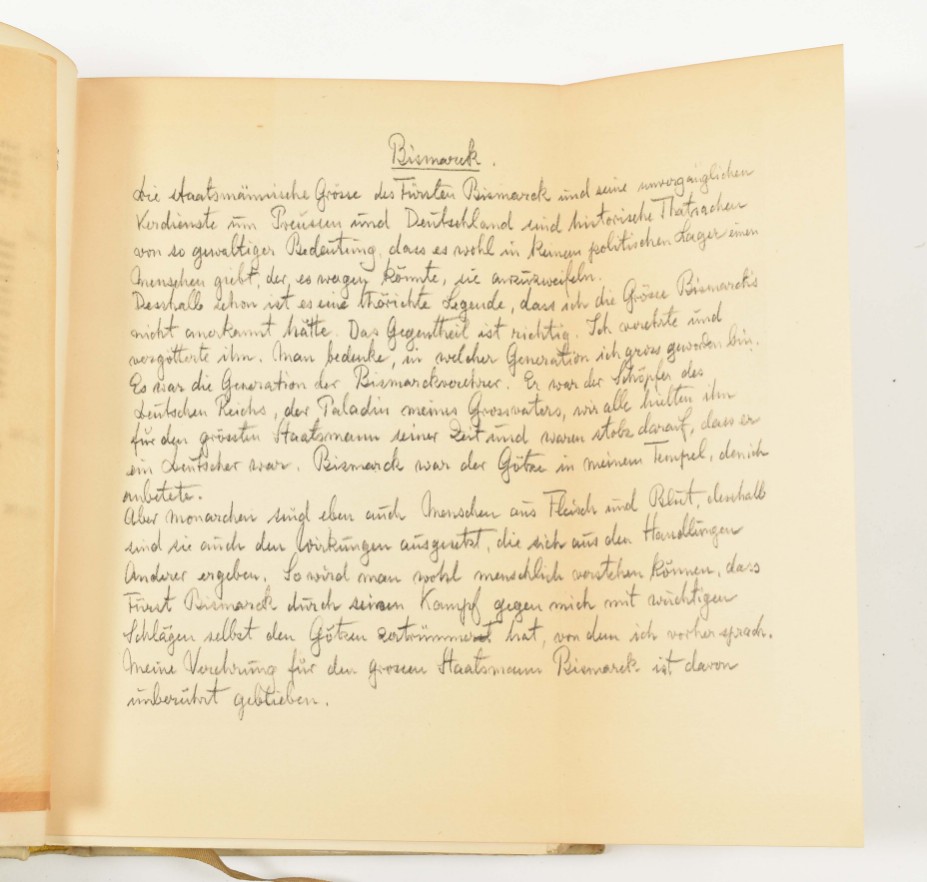 Bismarck.
Die staatsmännische Grösse des Fürsten Bismarck und seine unvergänglichen
Verdienste um Preussen und Deutschland sind historische Thatsachen
von so gewaltiger Bedeutung, dass es wohl in keinem politischen Lager einen
Menschen giebt, der, es wagen könnte, sie anzuzweifeln.
Desshalb schon ist es eine thörichte Legende, dass ich die Grösse Bismarck's
nicht anerkannt hätte. Das Gegentheil ist richtig. Ich verehrte und
vergötterte ihn. Man bedenke, in welcher Generation ich gross geworden bin.
Es war die Generation der Bismarckverehrer. Er war der Schöpfer des
Deutschen Reichs, der Paladin meines Grossvaters, wir alle hielten ihn
für den grössten Staatsmann seiner Zeit und waren stolz darauf, dass er
ein Deutscher war. Bismarck war der Götze in meinem Tempel, den ich
anbetete.
Aber Monarchen sind eben auch Menschen aus Fleisch und Blut, desshalb
sind sie auch den Wirkungen ausgesetzt, die sich aus den Handlungen
Anderer ergeben. So wird man wohl menschlich verstehen können, dass
Fürst Bismarck durch seinen Kampf gegen mich mit wuchtigen
Schlägen selbst den Götzen zertrümmert hat, von dem ich vorher sprach.
Meine Verehrung für den grossen Staatsmann Bismarck ist davon
unberührt geblieben.